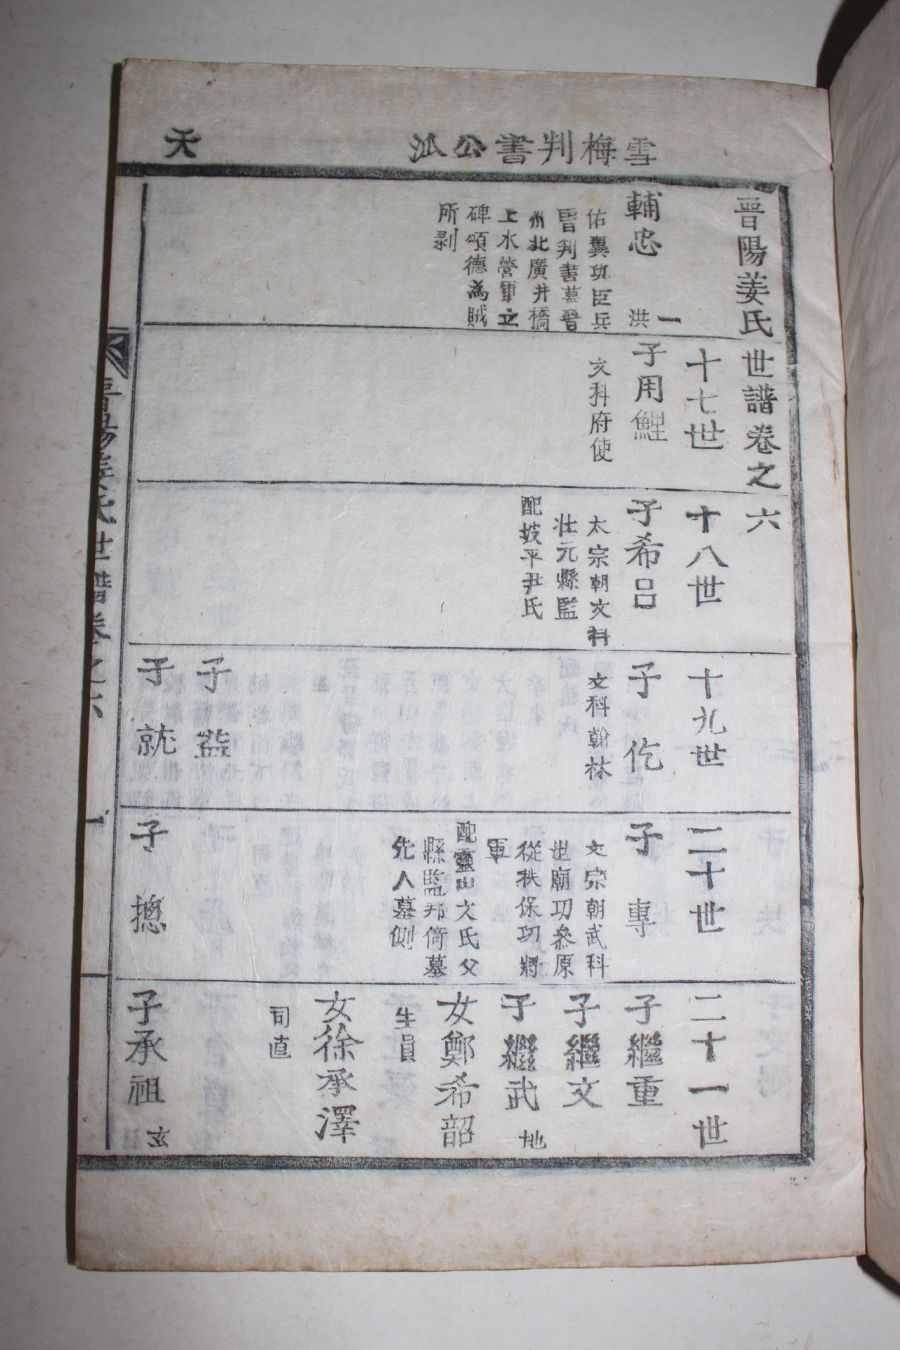 雪梅判書公派
天
晋陽姜氏世譜卷之六
輔忠
一
洪
佑翼功臣兵
曹判書墓晉
州北廣井橋
上水營軍立
碑頌德為賊
所剥
十七世
子用鯉
文科府使
十八世
子希呂
太宗朝文科
壮元縣監
配坡平尹氏
十九世
子仡
文科翰林
子益
子就
二十世
子專
文宗朝武科
世廟功叅原
從秩保功將
軍
配靈山文氏父
縣監邦衛墓
先人墓側
子摠
二十一世
子繼重
子繼文
子繼武
地
女鄭希韶
生員
女徐承澤
司直
子承祖
玄
晋陽姜氏世譜卷之六
一